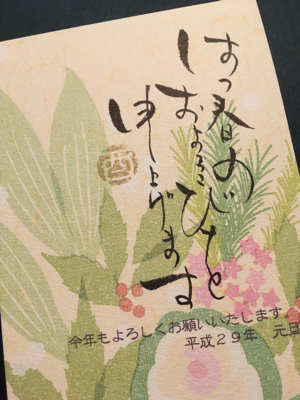 はつ春の
およろこびを
申し上げます
酉
今年もよろしくお願いいたします
平成29年 元旦